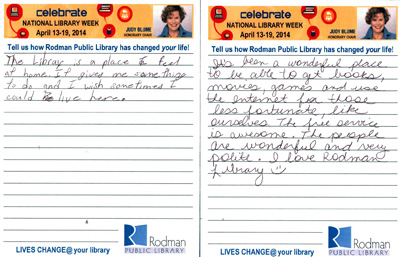 celebrate
NATIONAL LIBRARY WEEK
April 13-19, 2014
JUDY BLUME
HONORARY CHAIR
Tell us how Rodman Public Library has changed your life!
The Library is a place I feel
at home. It gives me somethings
to do and I wish sometimes I
could live here.
Rodman
PUBLIC LIBRARY
LIVES CHANGE@ your library
celebrate
NATIONAL LIBRARY WEEK
April 13-19, 2014
JUDY BLUME
HONORARY CHAIR
Tell us how Rodman Public Library has changed your life!
It's been a wonderful place
to be able to get books,
movies, games and use
the internet for those
less fortunate, like
ourselves. The free service
is awesome. The people
are wonderful and very
polite. I love Rodman
Library
Rodman
PUBLIC LIBRARY
LIVES CHANGE@ your library